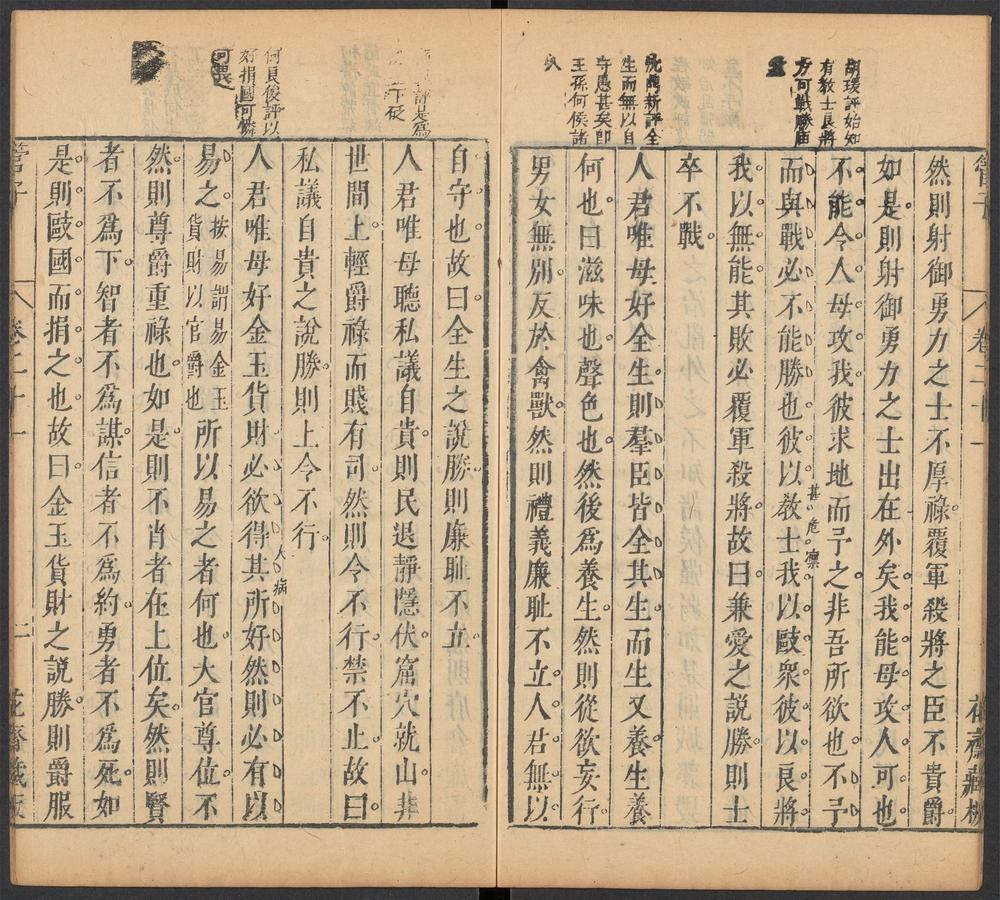 胡瑗評始知
有教士良將
方可戰勝
沈鼎新評全
生而無以自
守愚甚矣即
王孫何侯諸
管子
卷二十一
花齋藏板
然則射御勇力之士不厚祿覆軍殺將之臣不貴爵
如是則射御勇力之士出在外矣我能毋攻人可也
不能令人毋攻我彼求地而予之非吾所欲也不予
而與戰必不能勝也彼以教士我以毆衆彼以良將
甚危凛
我以無能其敗必覆軍殺將故曰兼愛之說勝則士
卒不戰
人君唯毋好全生則羣臣皆全其生而生又養生養
何也曰滋味也聲色也然後為養生然則從欲妄行
男女無別反於禽獸然則禮義廉恥不立人君無以
何良俊評以
好捐國可憐
可畏
自守也故曰全生之說勝則廉恥不立
人君唯毋聽私議自貴則民退靜隱伏窟穴就山非
世間上輕爵祿而賤有司然則令不行禁不止故曰
私議自貴之說勝則上令不行
人君唯毋好金玉貨財必欲得其所好然則必有以
大病
易之按易謂易金玉貨財以官爵也所以易之者何也大官尊位不
然則尊爵重祿也如是則不肖者在上位矣然則賢
者不為下智者不為謀信者不為約勇者不為死如
是則毆國而捐之也故曰金玉貨財之說勝則爵服
管子
卷二十一
二
花齋藏板